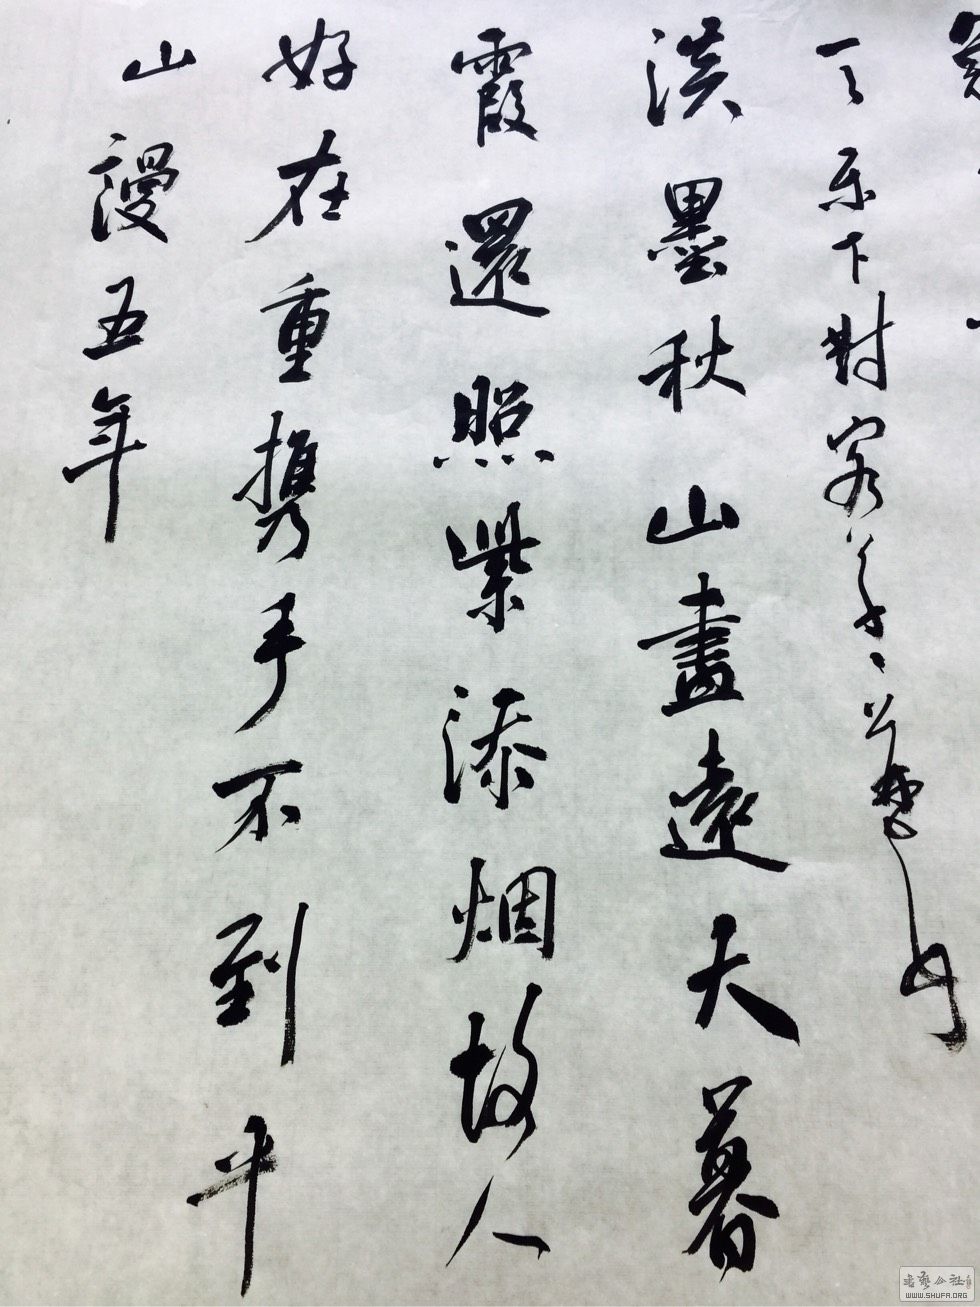 下對客
淡墨秋山畫遠天暮
霞還照紫添烟故人
好在重携手不到平
山謾五年
書藝公社
WWW.SHUFA.ORG